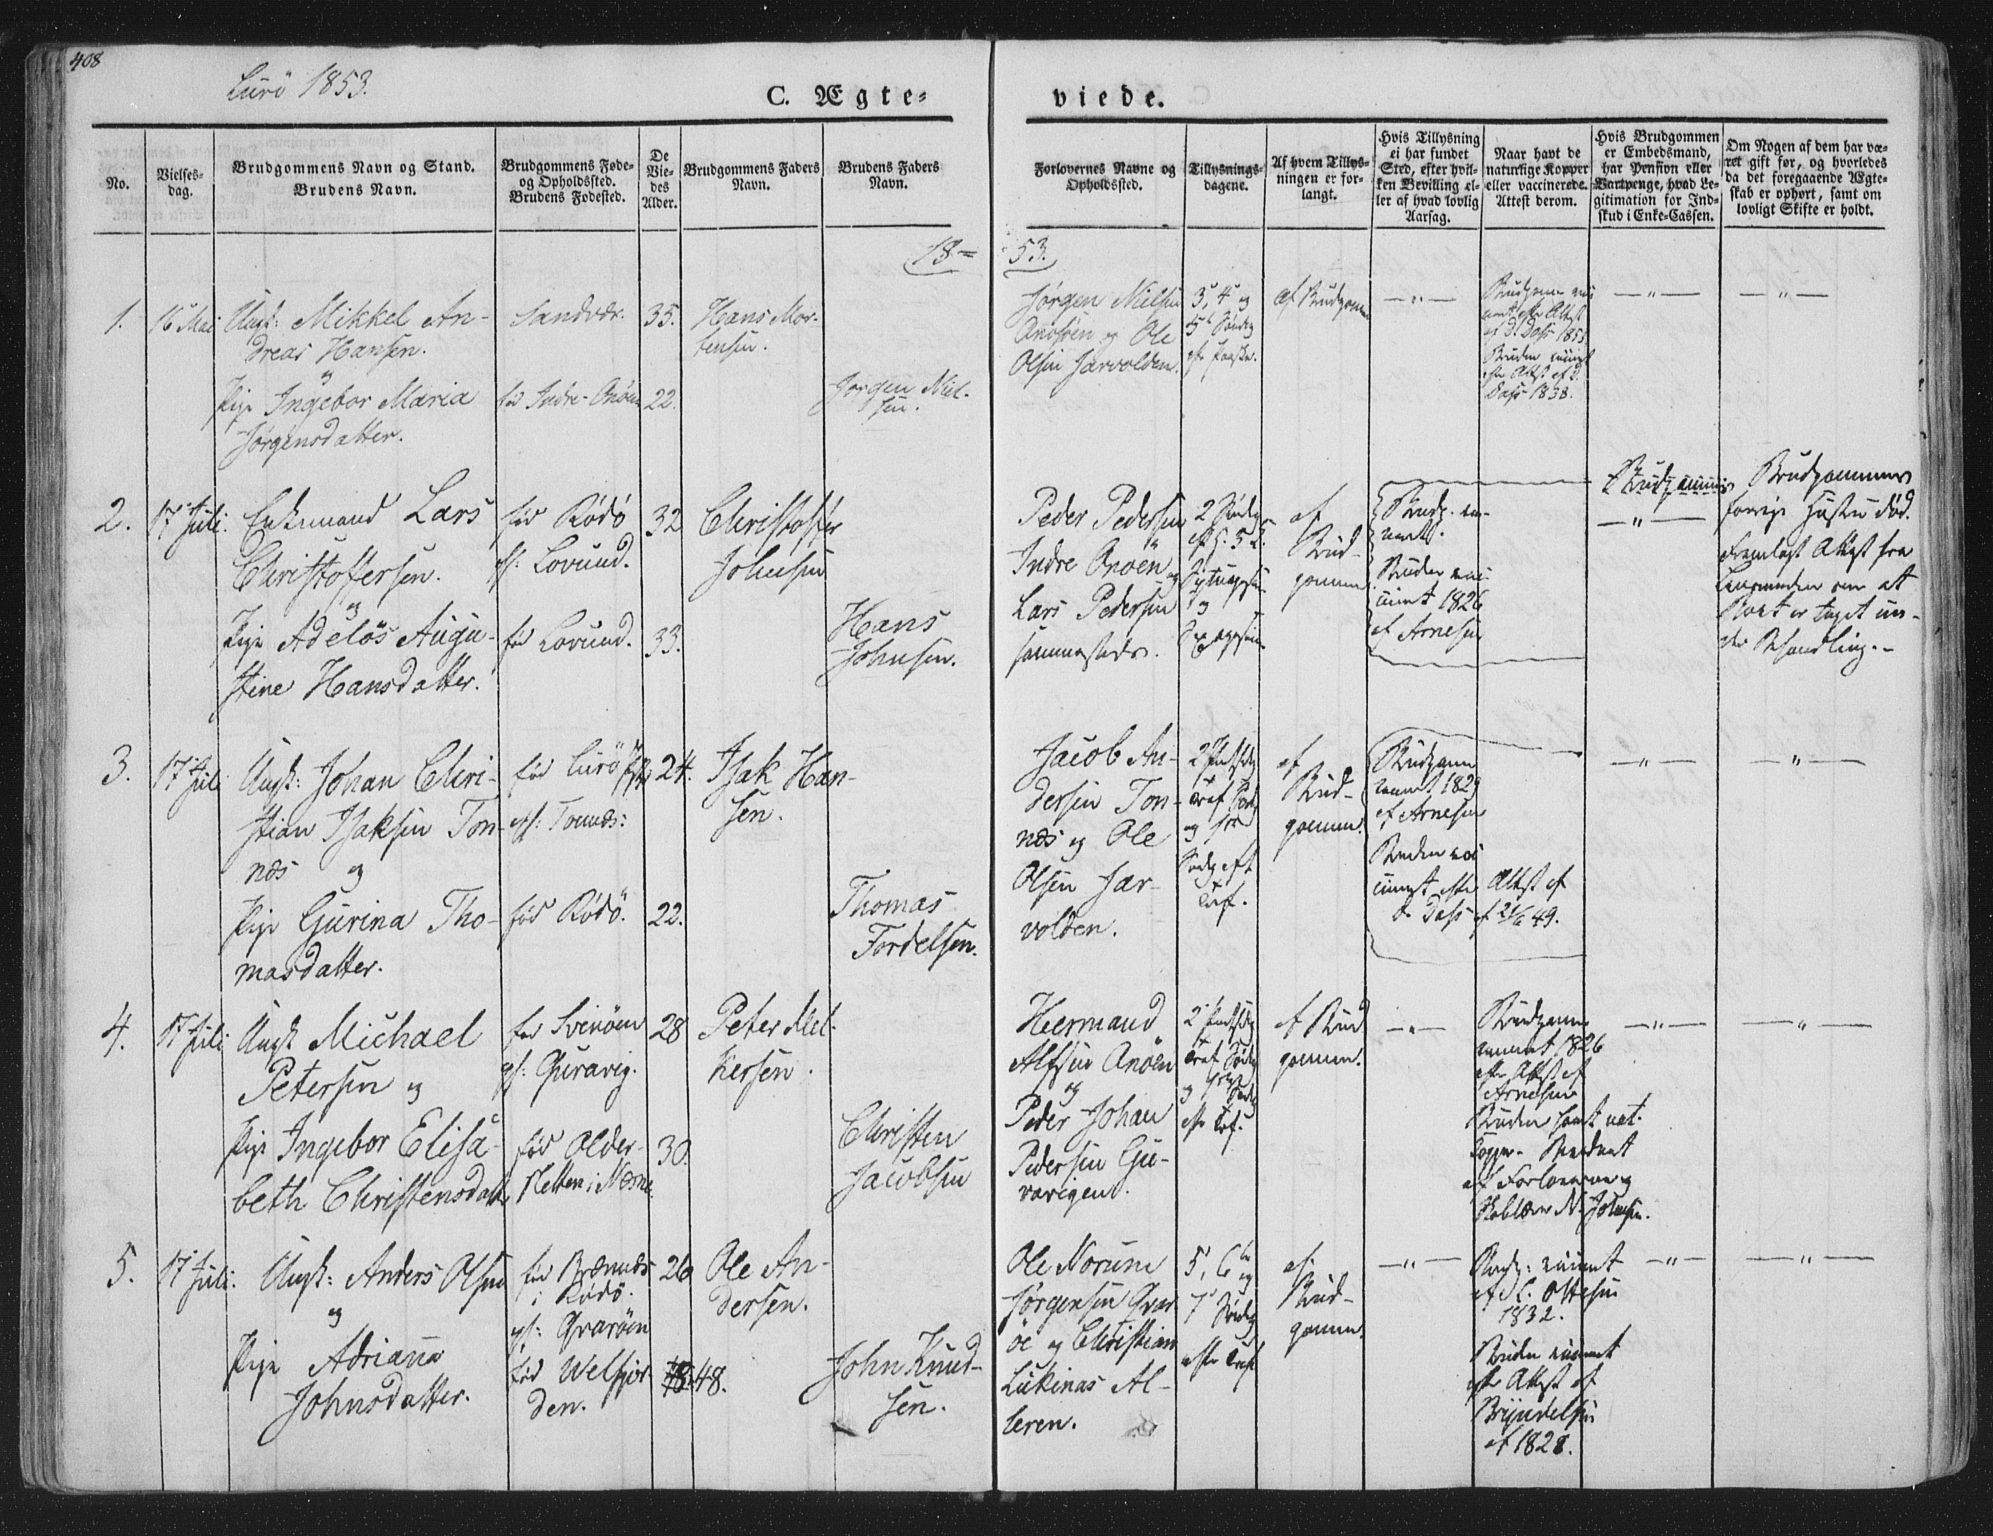 408
Lurö 1853.
C. Ægte-
viede.
No.
Vielses-
dag.
Brudgommens Navn og Stand.
Brudens Navn.
Brudgommens Føde-
og Opholdssted.
Brudens Fødested.
De
Vie-
des
Alder.
Brudgommens Faders
Navn.
Brudens Faders
Navn.
Forlovernes Navne og
Opholdssted.
Tillysnings-
dagene.
Af hvem Tillys-
ningen er for-
langt.
Hvis Tillysning
ei har fundet
Sted, efter hvil-
ken Bevilling el-
ler af hvad lovlig
Aarsag.
Naar havt de
naturlige Kopper
eller vaccinerede.
Attest derom.
Hvis Brudgommen
er Embedsmand,
har Pension eller
Vartpenge, hvad Le-
gitimation for Ind-
skud i Enke-Cassen.
Om Nogen af dem har væ-
ret gift før, og hvorledes
da det foregaaende Ægte-
skab er ophørt, samt om
lovligt Skifte er holdt.
18=
53.
1.
16 Mai
Ungk: Mikkel An-
dreas Hansen.
og
Pige Ingebor Maria
Jørgensdatter.
Sandvær.
fød Indre-Onöen
35.
22.
Hans Mor-
tensen.
Jørgen Niel-
sen.
Jørgen Nielsen
Onöen og Ole
Olsen Sarvolden.
3, 4 og
5 Søndag
efter Paaske.
af Brudgomm.
— " —
Brudgomm vac
efter Attest
af d. Dass 1853
Bruden vaccinet
efter Attest af d.
Dass 1838.
— " —
— " —
2.
17 Juli.
Enkemand Lars
Christoffersen.
og
Pige Adelös Augu-
stine Hansdatter.
fød Rödö
oph: Lovund.
fød Lovund.
32
33.
Christoffer
Johnsen
Hans
Johnsen.
Peder Pedersen
Indre Onöen og
Lars Pedersen
sammesteds.
2 Søndag
og
af
Brud-
gommen
Brudg. vac-
Bruden vac-
cinet 1826
af Arnesen
— " —
Brudgommens
forrige Hustru död.
Fremlagt Attest fra
Lensmanden om at
Boet er taget un-
der Behandling.-
3.
17 Juli
Ungk: Johan Chri-
stian Isaksen Ton-
næs og
Pige Gurina Tho-
masdatter.
fød Lurö
oph: Tonnæs:
fød Rödö.
24.
22.
Isak Han-
sen.
Thomas
Tordelsen.
Jacob An-
dersen Ton-
næs og Ole
Olsen Sar-
volden.
af
Brud-
gomm.
Brudgomm
1829
af Arnesen
Bruden vac
cinet efter
d. Dass
Attest af
af 21/6 49.
— " —
— " —
4.
17 Juli
Ungk Michael
Petersen og
Pige Ingebor Elisa-
beth Christensdatt
fød Svinöen
oph: Quravig.
fød Older-
sletten i Næsne
28
30.
Peter Mel-
kersen.
Christen
Jacobsen
Hermand
Alfsen Onöen
og
Peder Johan
Pedersen Gu-
ravigen.
af Brud
gomm.
— " —
Brudgomm
1826
efter Attest af
Arnesen
Bruden havt nat.
Kopper.
af Forloverne og
N. Johnsen.
— " —
— " —
5.
17 Juli.
Ungk: Anders Olsen
og
Pige Adriana
Johnsdatter.
fød
i Rödö.
oph: Qvaröen
fød Welfjor-
den.
26
48.
Ole An-
dersen.
John Knud-
sen.
Ole Norum
Jørgensen Qvar
öe og Christian
Lukinas Al-
teren.
5, 6 og
7 Søndag
efter Tref
af
Brud-
gomm.
— " —
Brudg: vaccinet
Ottesen
1832.
Bruden vaccinet
efter Attest af
Bryndelsen
af 1828.
— " —
— " —